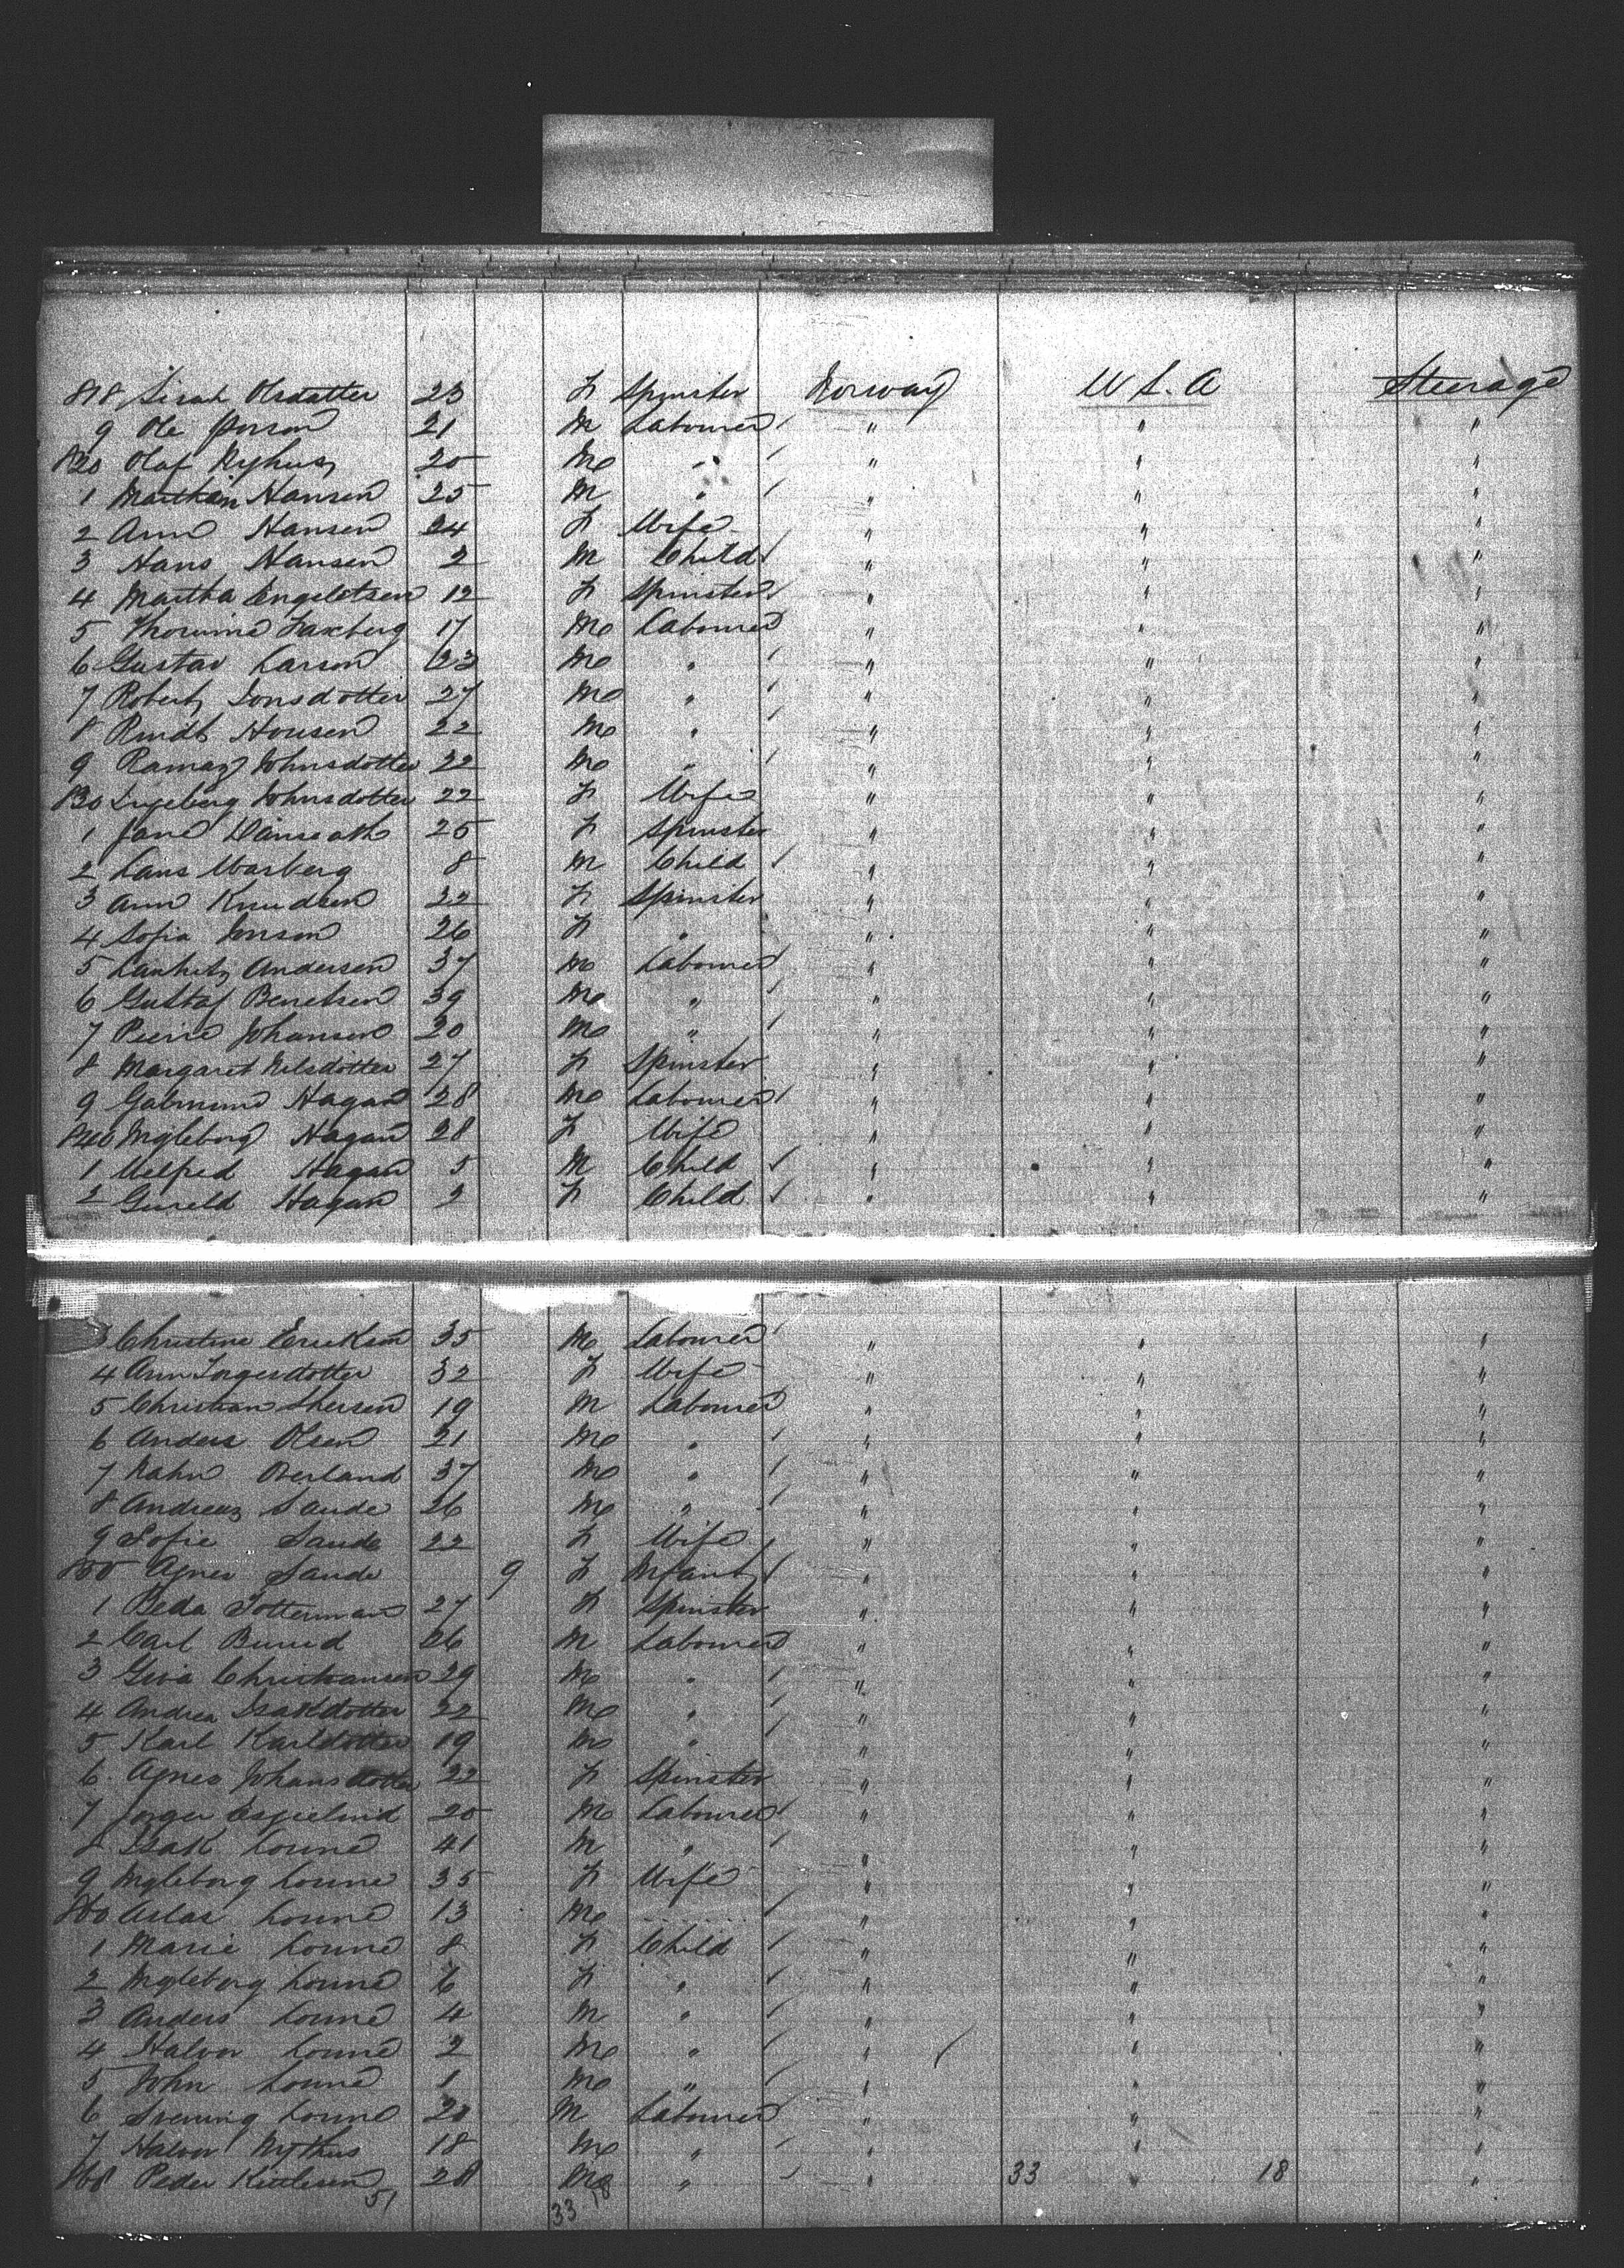 818 Sirah Olsdatter 23 F Spinster Norway U S. A Steerage
9 Ole Person 21 M Labourer " " "
820 Olaf Nyhus 20 M " " " "
1 Marthin Hansen 25 M " " " "
2 Ann Hansen 24 F Wife " " "
3 Hans Hansen 2 M Child " " "
4 Martha Engeletsen 12 F Spinster " " "
5 Faxberg 17 M Labourer " " "
6 Gustav Larson 23 M " " " "
7 Robert Jonsdotter 27 M " " " "
8 Rindt Housen 22 M " " " "
9 Ramaz Johnsdotter 22 M " " " "
830 Ingeberg Johnsdotter 22 F Wife " " "
1 Jane 25 F Spinster " " "
2 Lans Warberg 8 M Child " " "
3 Ann Knudsen 22 F Spinster " " "
4 Sofia Jonson 26 F " " " "
5 Lauhitz Andersen 37 M Labourer " " "
6 Gustaf Benetsen 39 M " " " "
7 Peirie Johansen 20 M " " " "
8 Margaret Nelsdotter 27 F Spinster " " "
9 Gabmund Hagan 28 M Labourer " " "
840 Ingleborg Hagan 28 F Wife " " "
1 Melfred Hagan 5 M Child " " "
2 Gureld Hagan 2 F Child " " "
3 Christine Erickson 35 M Labourer " " "
4 Ann Torgesdotter 32 F Wife " " "
5 Christian Thersen 19 M Labourer " " "
6 Anders Olsen 21 M " " " "
7 Nahn Overland 37 M " " " "
8 Andreas Sande 26 M " " " "
9 Sofie Sande 22 F Wife " " "
850 Agnes Sande 9 F Infant " " "
1 Beda Totterman 27 F Spinster " " "
2 Carl 26 M Labourer " " "
3 Christiansen 29 M " " " "
4 Andrea Isakdotter 22 M " " " "
5 Karl Karldotter 19 M " " " "
6 Agnes Johansdotter 22 F Spinster " " "
7 Jorger 20 M Labourer " " "
8 Isak Loune 41 M " " " "
9 Ingleborg Loune 35 F Wife " " "
860 Aslas Loune 13 M " " "
1 Marie Loune 8 F Child " " "
2 Ingleborg Loune 6 F " " " "
3 Anders Loune 4 M " " " "
4 Halvor Loune 2 M " " " "
5 John Loune 1 M " " " "
6 Svening Loune 20 M Labourer " " "
7 Halvor Nythus 18 M " " " "
868 Peder Kettlesen 28 M " " 33 " 18 "
51 33 18